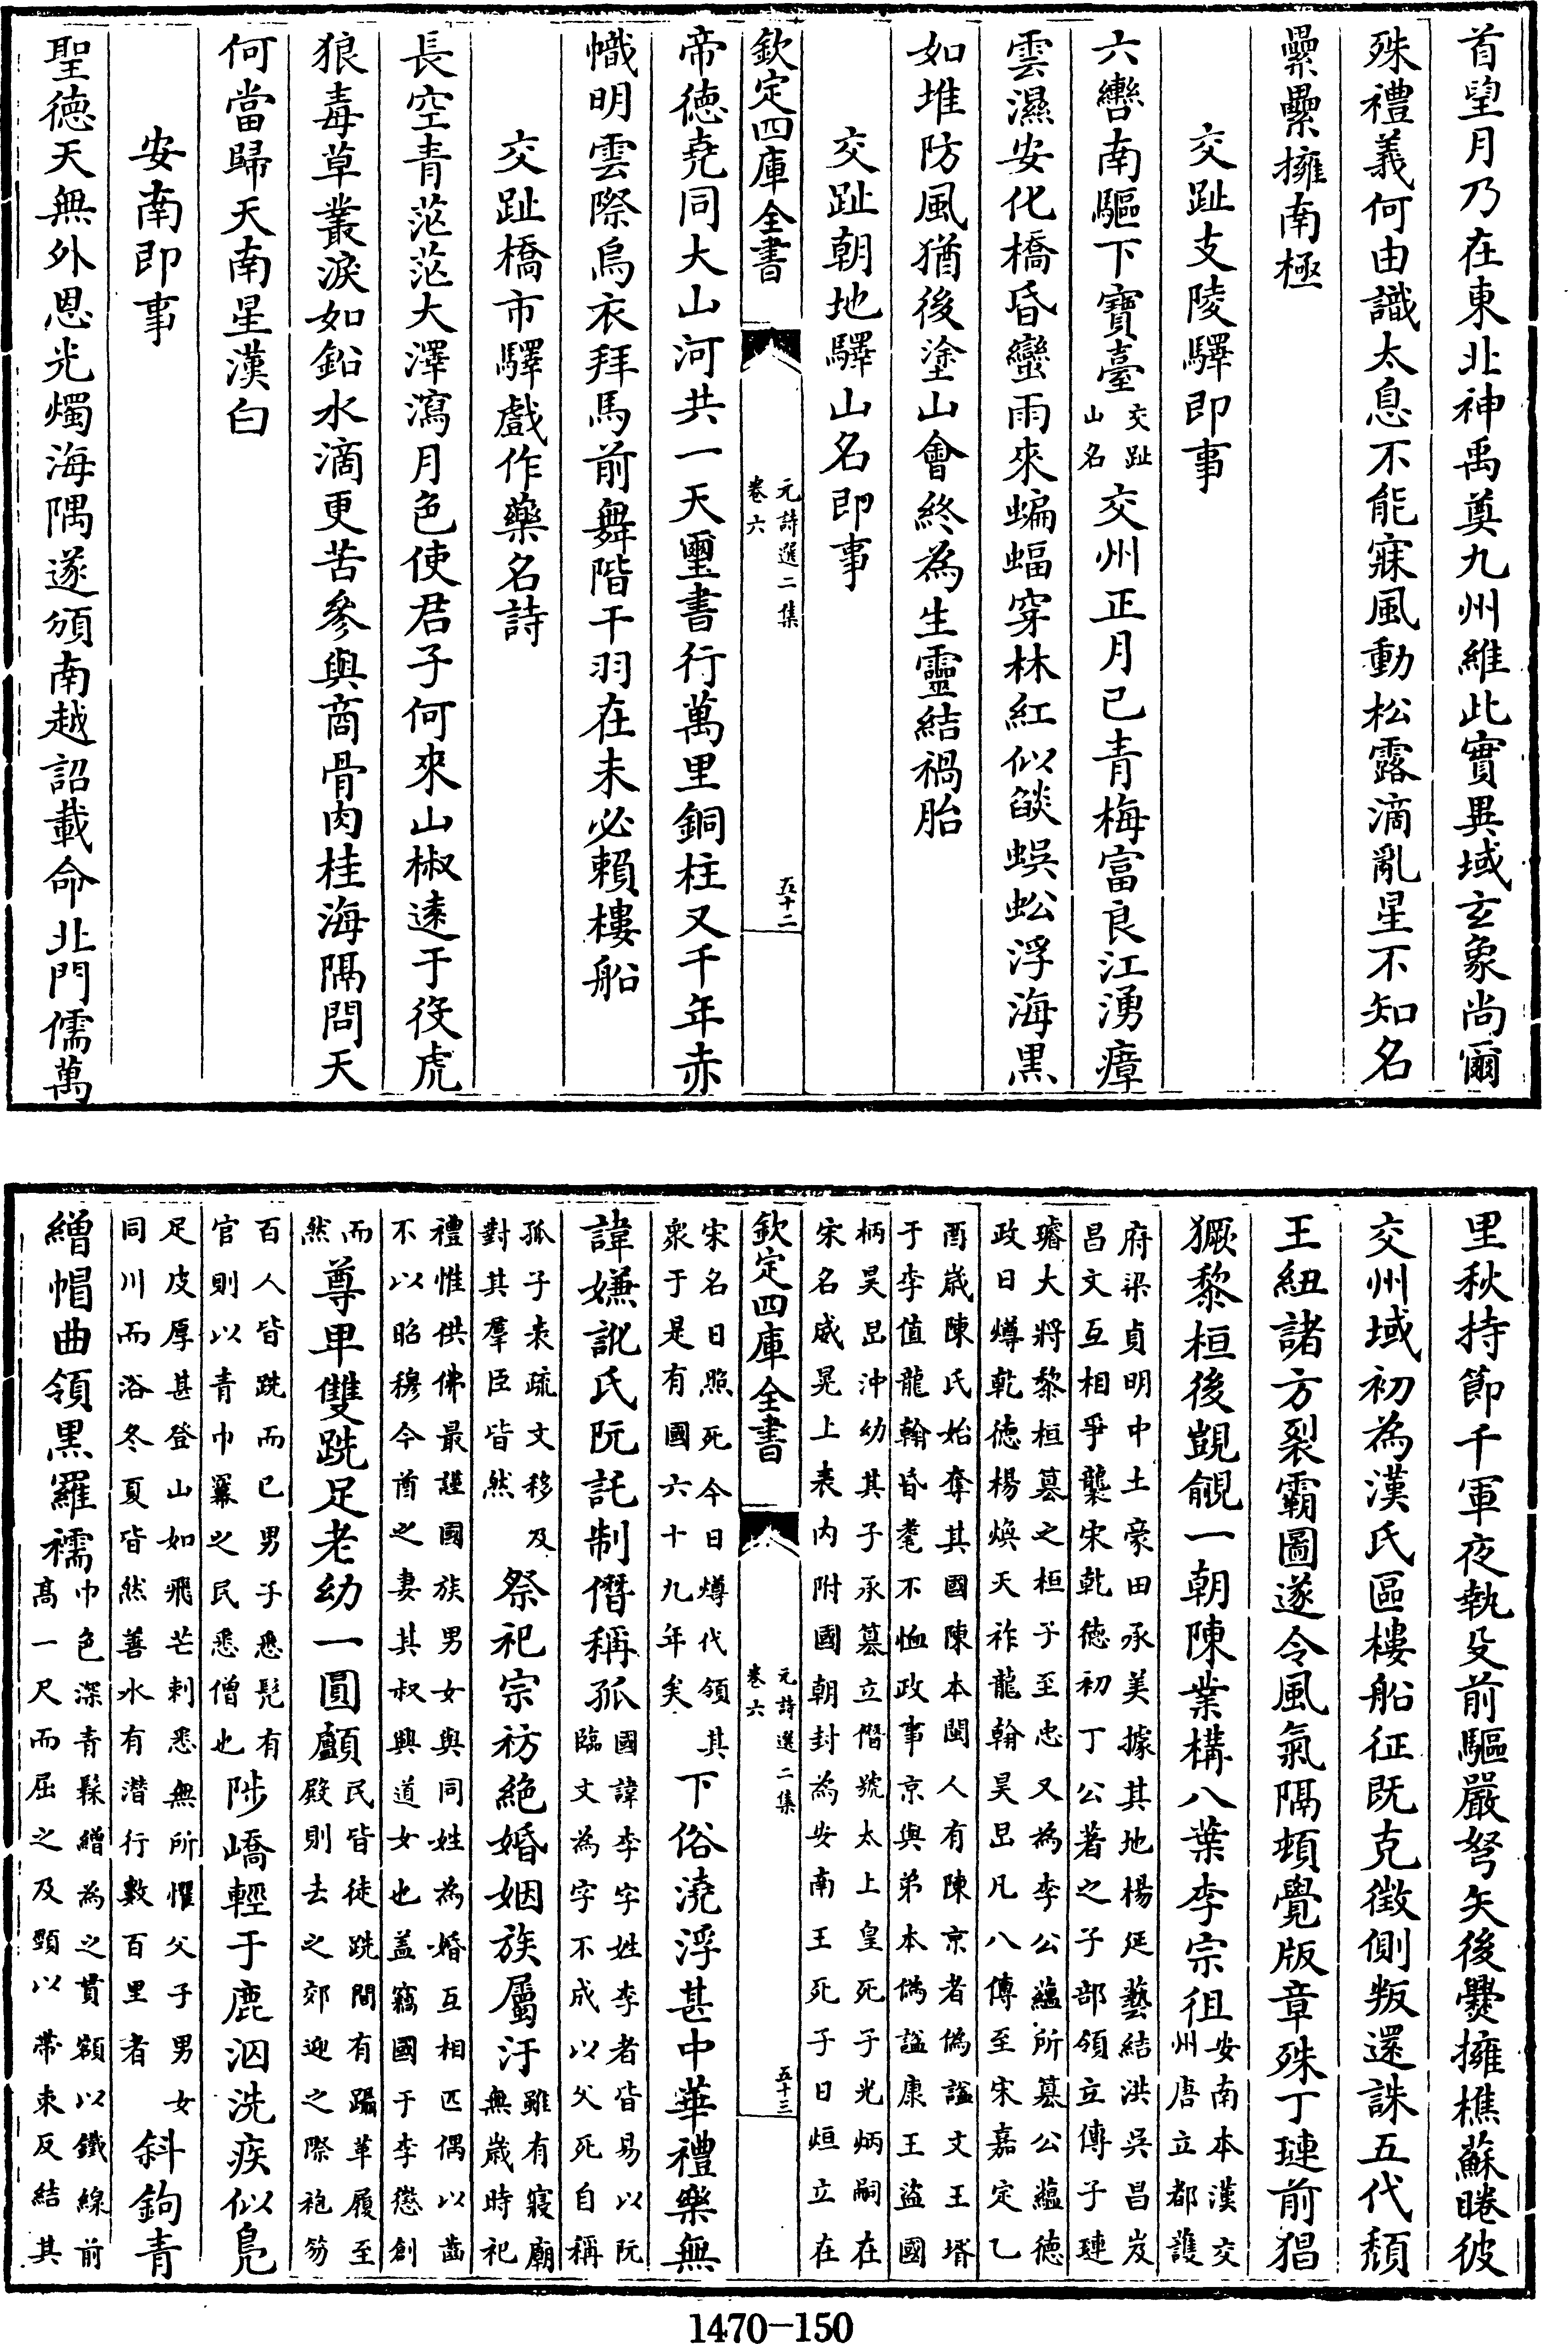 首望月乃在東北神禹奠九州維此實異域玄象尚爾
殊禮義何由識太息不能寐風動松露滴亂星不知名
纍纍擁南極
交趾支陵驛即事
六轡南驅下寶臺交趾山名交州正月已青梅富良江湧瘴
雲濕安化橋昏蠻雨來蝙蝠穿林紅似燄蜈蚣浮海黒
如堆防風猶後塗山會終為生靈結禍胎
交趾朝地驛山名即事
欽定四庫全書
元詩選二集
卷六
五十二
帝徳堯同大山河共一天璽書行萬里銅柱又千年赤
幟明雲際烏衣拜馬前舞階干羽在未必賴樓船
交趾橋市驛戲作藥名詩
長空青茫茫大澤瀉月色使君子何來山椒逺于役虎
狼毒草叢淚如鉛水滴更苦參與商骨肉桂海隔問天
何當歸天南星漢白
安南即事
聖徳天無外恩光燭海隅遂頒南越詔載命北門儒萬
里秋持節千軍夜執殳前驅嚴弩矢後㸑擁樵蘇睠彼
交州域初為漢氏區樓船征既克徴側叛還誅五代頽
王紐諸方裂霸圖遂令風氣隔頓覺版章殊丁璉前猖
獗黎桓後覬覦一朝陳業構八葉李宗徂安南本漢交州唐立都䕶
府梁貞明中土豪田承美據其地楊延藝結洪吳昌岌
昌文互相爭襲宋乾徳初丁公著之子部領立傳子璉
璿大將黎桓簒之桓子至忠又為李公蘊所簒公蘊徳
政日㷱乾徳楊煥天祚龍翰昊旵凡八傳至宋嘉定乙
酉歲陳氏始奪其國陳本閩人有陳京者偽諡文王壻
于李值龍翰昏耄不恤政事京與弟本偽諡康王盜國
柄昊旵沖幼其子承簒立僭號太上皇死子光炳嗣在
宋名威晃上表内附國朝封為安南王死子日烜立在
欽定四庫全書
元詩選二集
卷六
五十三
宋名日照死今日㷱代領其
衆于是有國六十九年矣
下俗澆浮甚中華禮樂無
諱嫌訛氏阮託制僭稱孤國諱李字姓李者皆易以阮臨文為字不成以父死自稱
孤子表疏文移及
對其羣臣皆然
祭祀宗祊絶婚姻族屬汙雖有寢廟無歲時祀
禮惟供佛最謹國族男女與同姓為婚互相匹偶以齒
不以昭穆今酋之妻其叔興道女也蓋竊國于李懲創
而然
尊卑雙跣足老幼一圓顱民皆徒跣間有躡革履至殿則去之郊迎之際袍笏
百人皆跣而已男子悉髠有
官則以青巾羃之民悉僧也
陟嶠輕于鹿泅洗疾似鳧
足皮厚甚登山如飛芒刺悉無所懼父子男女
同川而浴冬夏皆然善水有潛行數百里者
斜鉤青
繒帽曲領黒羅襦巾色深青䋺繒為之貫額以鐵線前高一尺而屈之及頸以帶束反結其
1470-150